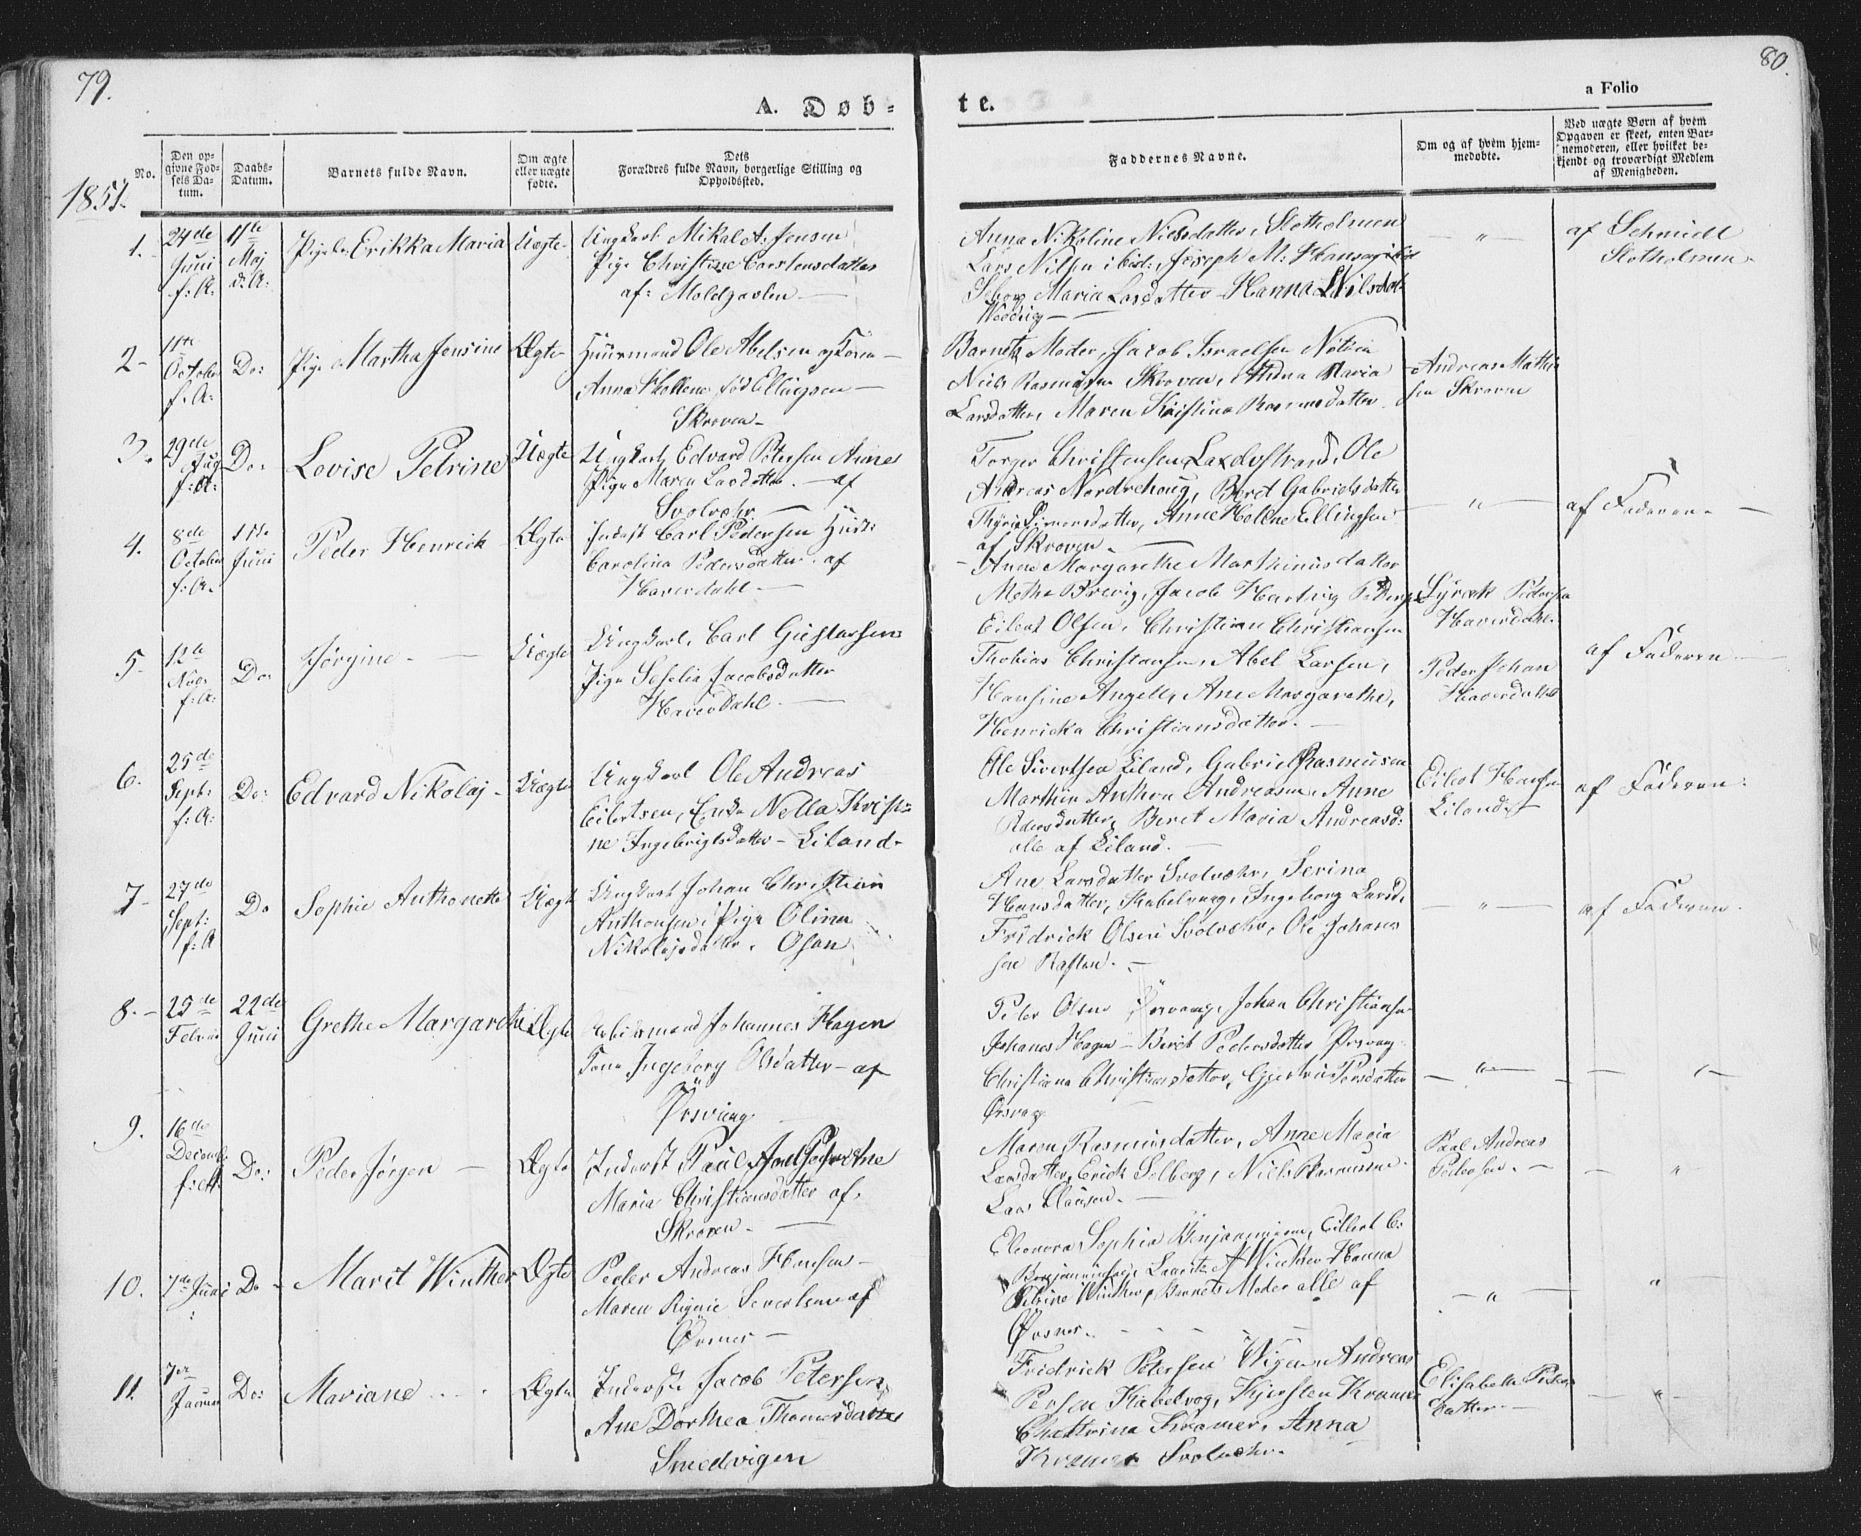 79.
80.
A. Døb-
te.
a Folio
No.
Den opgivne Fødsels Datum.
Daabs-Datum.
Barnets fulde Navn.
Om ægte eller uægte fødte.
Dets Forældres fulde Navn, borgerlige Stilling og Opholdsted.
Faddernes Navne.
Om og af hvem hjemmedøbte.
Ved uægte Børn af hvem Opgaven er skeet, enten Barnemoderen, eller hvilket bekjendt og troværdigt Medlem af Menigheden.
1851.
1. 24de Juni f: A: 11te Maj d: A: Pige Erikka Maria Uægte
Ungkarl Mikal A: Jensen
Pige Christine Carstensdatter
af: Moldgavlen
Anna Nikoline Nielsdatter, Slotholmen
Lars Nilsen ibid: Joseph M: Hansen ibid
Maria Larsdatter Hanna Nilsdat
af Schmidt
Slotholmen
2 11te October f. A: Do: Pige Martha Jensine Ægte
Huusmand Ole Abelsen og Kone
Anna Helene født Ellingsen
Skroven
Barnets Moder, Jacob Israelsen
Niels Rasmussen Skroven, Anna Maria
Larsdatter, Maren Kristina Rasmusdatter
Andreas Mathi
sen Skroven
3. 29de Aug f: A: Do: Lovise Petrine Uægte
Ungkarl Edvard Petersen
Pige Maren Larsdatter af
Svolvær
Torger Christensen Laxdystrand, Ole
Andreas Nordrehoug, Beret Gabrielsdatter
Simonsdatter, Anne Helene Ellingsen
af Skroven
af Faderen
4. 8de October f. A. 11te Juni Peder Henrick Ægte
Inderst Carl Pedersen Hust:
Carolina Pedersdatter af
Haverdahl
Anne Margarethe Marthinusdatter
Metha Brevig, Jacob Hartvig Peders
Eilert Olsen, Christian Christiansen
Pedersen
Haverdahl
5 12te Nov f: A: Do: Jørgine Uægte
Ungkarl, Carl Gustavsen
Pige Seselia Jacobsdatter
Haverdahl
Thobias Christiansen, Abel Larsen,
Hansine Angell, Ane Margarethe,
Henricka Christiansdatter.
Peder Johan
Haverdahl
af Faderen
6. 25de Sept: f: A: Do: Edvard Nikolaj Uægte
Ungkarl Ole Andreas
Eilertsen, Enke Nella Kristi
ne Ingebrigtsdatter Eiland
Ole Sivertsen Eiland, Gabriel Rasmussen
Marthin Anthon Andreasen Anne
Pedersdatter, Beret Maria Andreasd:
alle af Eiland.
Eilert Hansen
Eiland
af Faderen.
7 27de Sept: f: A Do Sophie Anthonette Uægte
Ungkarl Johan Christian
Anthonsen, Pige Olina
Nikolajsdatter. Osan
Ane Larsdatter Svolvær, Serina
Hansdatter, Kabelvaag, Ingeborg Larsd.
Fridrick Olsen Svolvær, Ole Johanes
sen Raften.
af Faderen.
8. 25de Febru 22de Juni Grethe Margarethe Ægte
Arbeidsmand Johannes Hagen
Kone Ingeborg Olsdatter af
Ørsvaag
Peter Olsen Ørsvaag, Johan Christiansen
Johanes Hagen Berit Pedersdatter Ørsvaag
Christiana Christiansdatter, Gjertru Larsdatter
Ørsvaag
9. 16de Decemb: f: A: Do: Peder Jørgen Ægte
Inderst Paul
Maria Christiansdatter af
Skroven
Maren Rasmusdatter, Anne Maria
Larsdatter, Erick Solberg, Niels Rasmussen
Lars Clausen.
Paul Andreas
Pedersen.
10. 7de Juni Do Marit Winther Ægte
Peder Andreas Hansen
Maren Severtsen af
Ørsnes
Eleonora Sophia Benjaminsen, Eilert C:
Benjaminsen, Lauritz A Winther Hanna
Petrine Winther, Barnets Moder alle af
Ørsnes.
11. 7de Januar Do: Mariane Ægte
Inderst Jacob Petersen
Ane Dorthea Thomasdatter
Smedvigen
Fridrick Petersen Wigen, Andreas
Persen Kabelvog, Kjersten Kramer
Chattrina Kramer, Anna
Kramer Svolvær.
Elisabeth Peders
datter